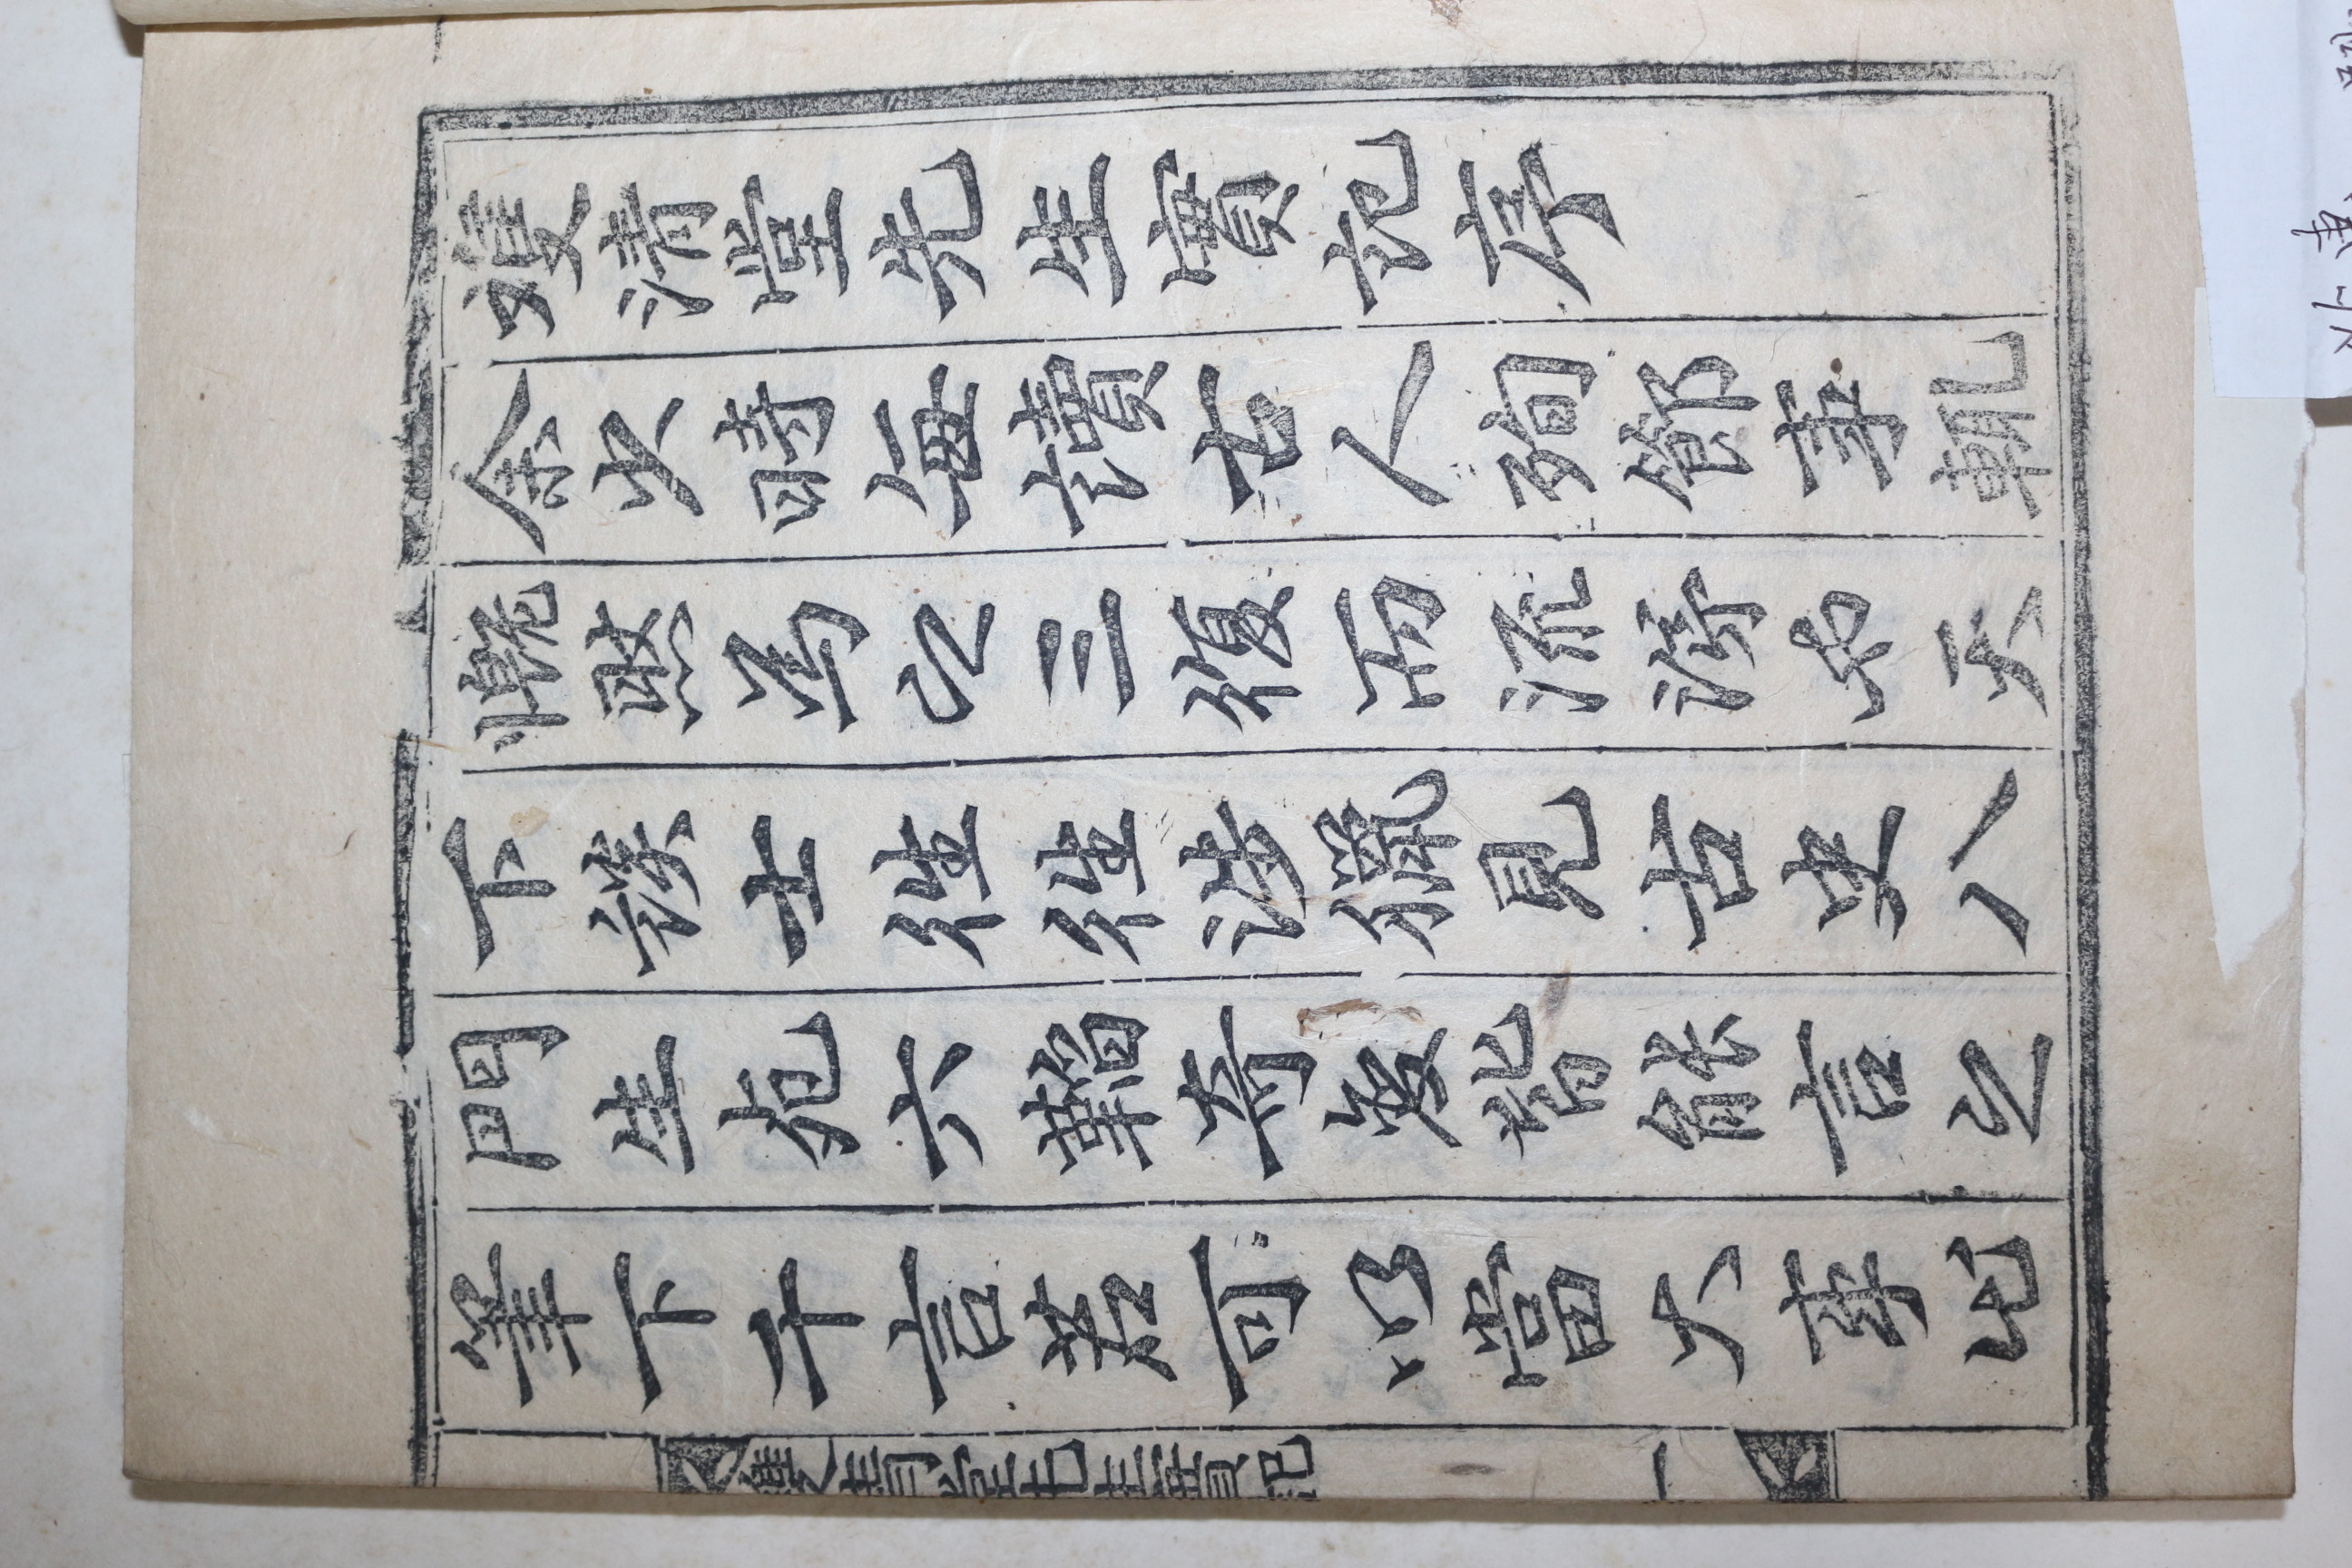 雙清堂先生實記序
余少時每讀古人殉節事輒
慨然爲之三復而流涕也天
下談士徃徃涉獵見古史八
門生死六韜奇變皆能言之
筆下千言若可以當大事此
雙清堂先生實記
一